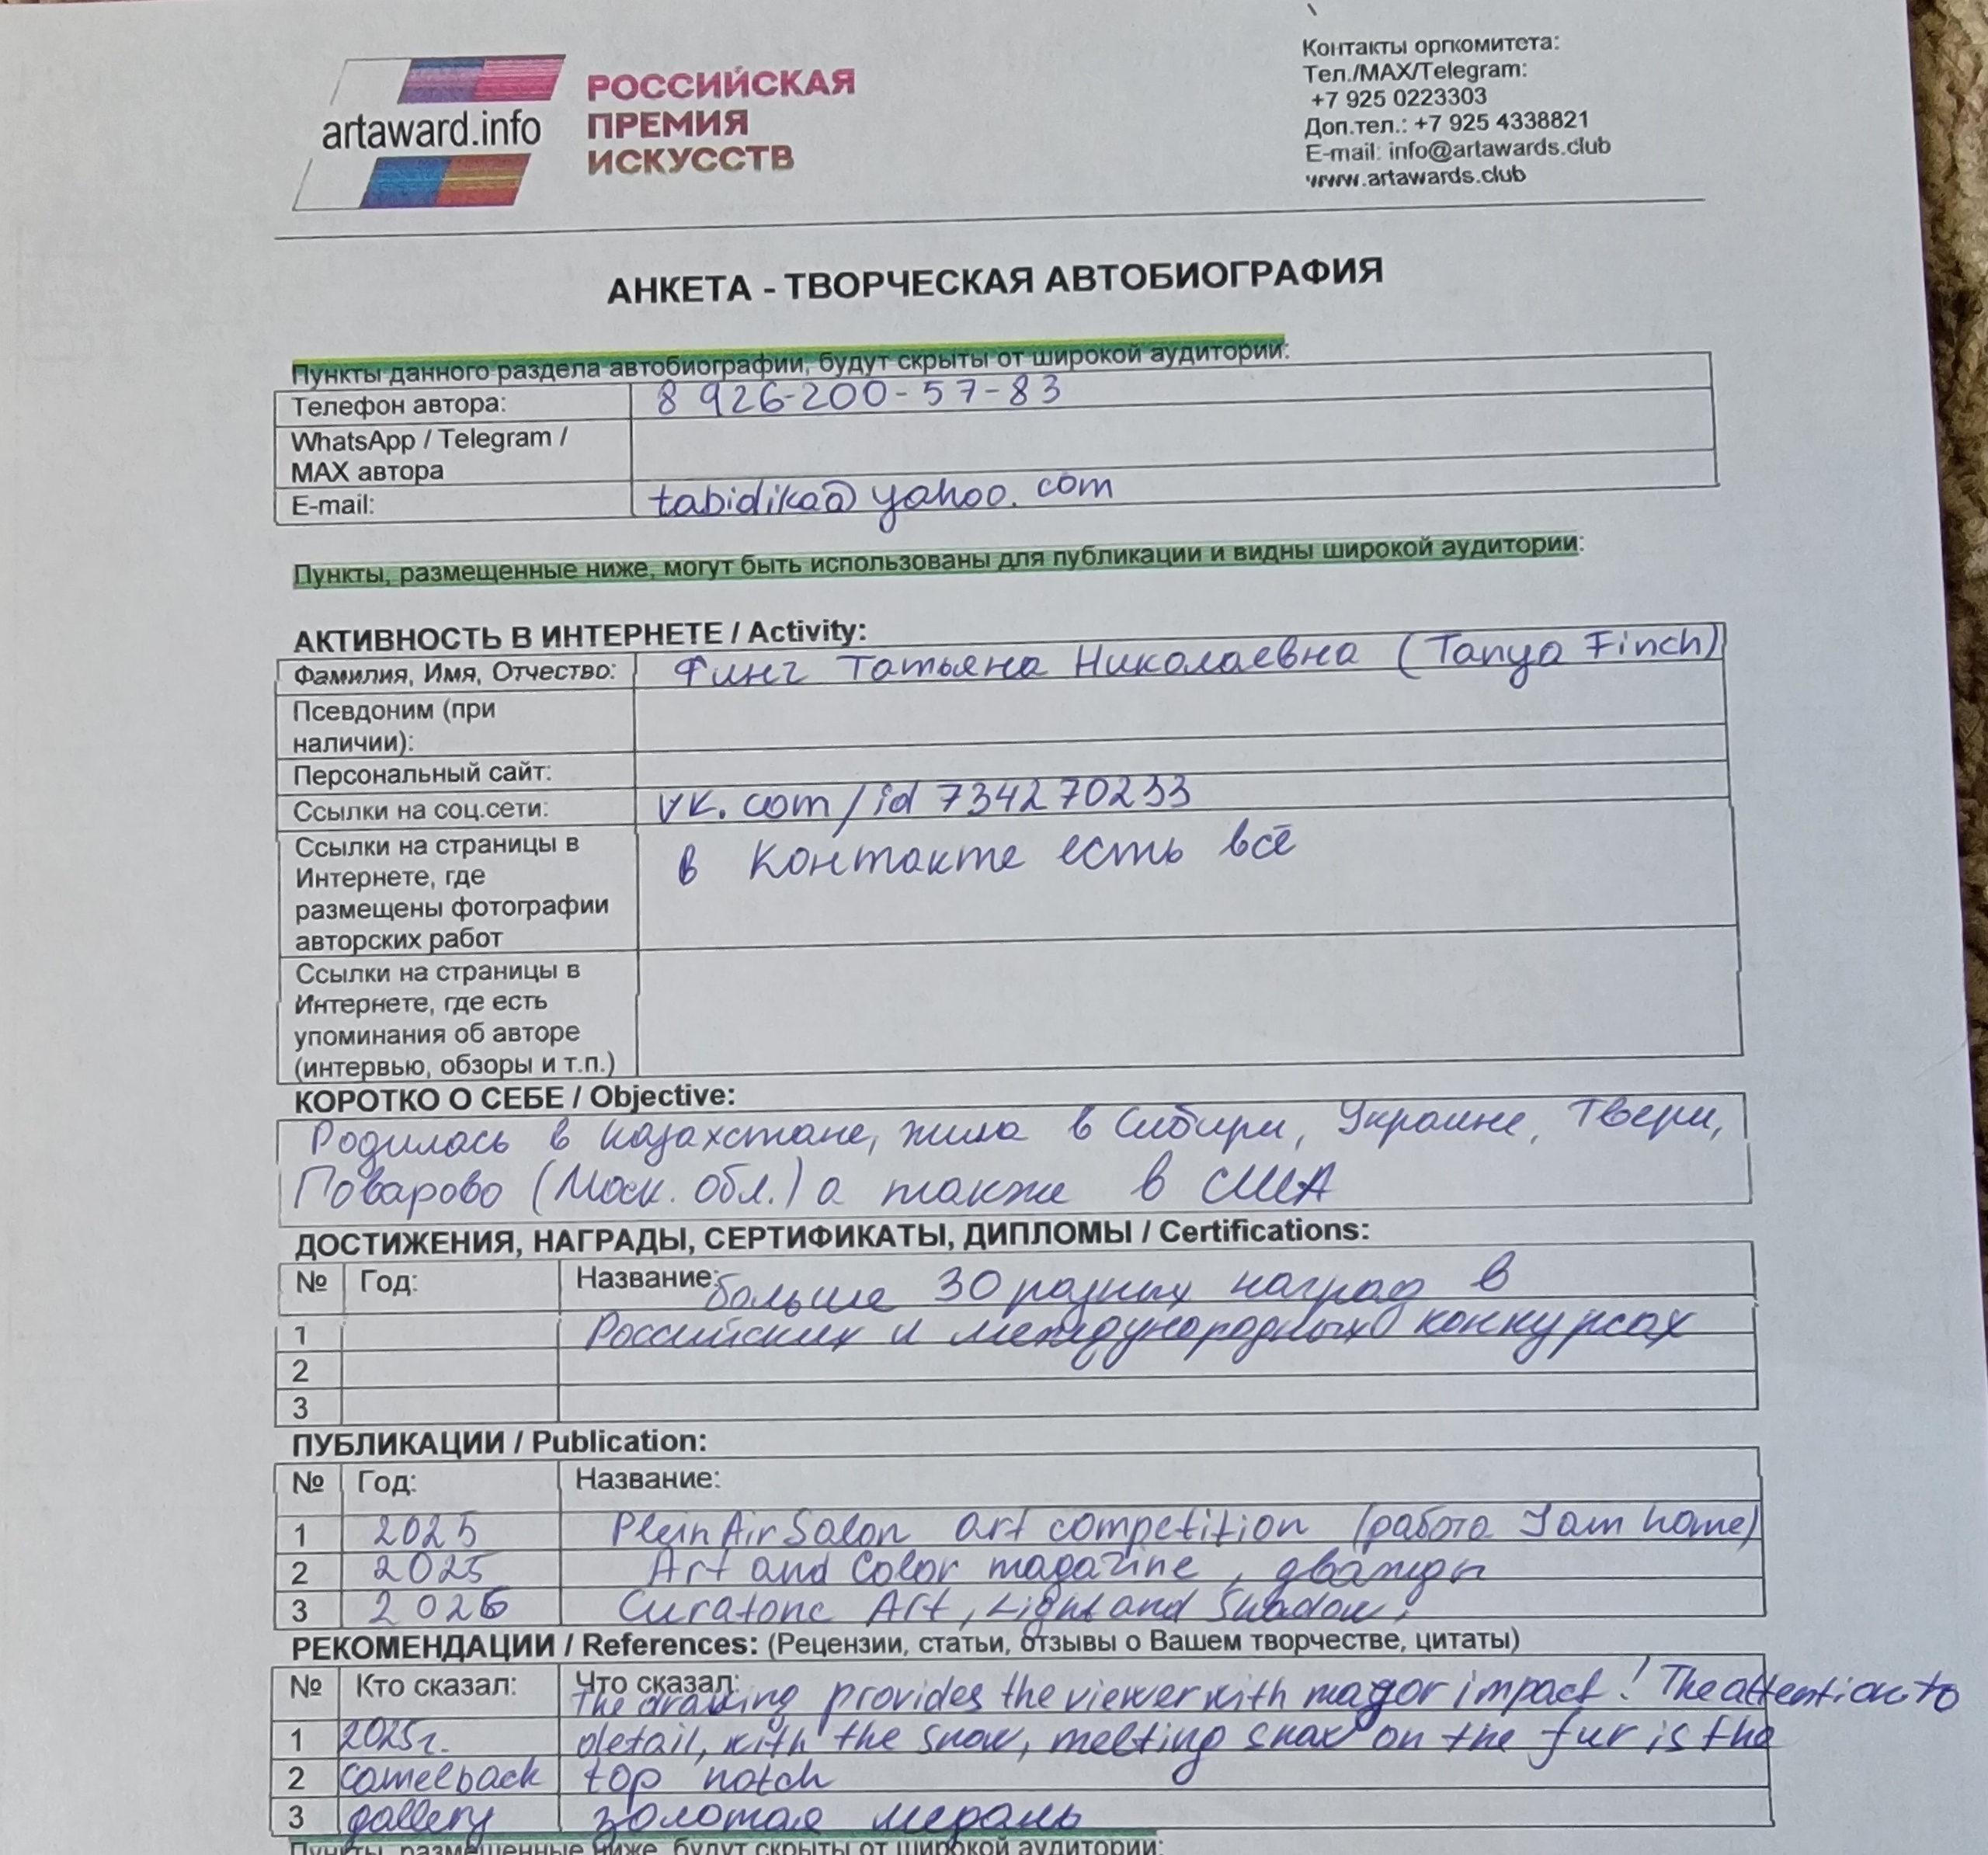 artaward.info
РОССИЙСКАЯ
ПРЕМИЯ
ИСКУССТВ
Контакты оргкомитета:
Тел./MAX/Telegram:
+7 925 0223303
Доп.тел.: +7 925 4338821
E-mail: info@artawards.club
www.artawards.club
АНКЕТА - ТВОРЧЕСКАЯ АВТОБИОГРАФИЯ
Пункты данного раздела автобиографии, будут скрыты от широкой аудитории:
Телефон автора: 8 926-200-57-83
WhatsApp / Telegram /
MAX автора
E-mail: tabidika@yahoo.com
Пункты, размещенные ниже, могут быть использованы для публикации и видны широкой аудитории:
АКТИВНОСТЬ В ИНТЕРНЕТЕ / Activity:
Фамилия, Имя, Отчество: Финг Татьяна Николаевна (Tanya Finch)
Псевдоним (при
наличии):
Персональный сайт:
Ссылки на соц.сети: vk.com/id734270233
Ссылки на страницы в
Интернете, где
размещены фотографии
авторских работ
в Контакте есть всё
Ссылки на страницы в
Интернете, где есть
упоминания об авторе
(интервью, обзоры и т.п.)
КОРОТКО О СЕБЕ / Objective:
Родилась в Казахстане, жила в Сибири, Украине, Твери,
Поварово (Моск. обл.) а также в США
ДОСТИЖЕНИЯ, НАГРАДЫ, СЕРТИФИКАТЫ, ДИПЛОМЫ / Certifications:
№ Год: Название: больше 30 разных наград в
1 Российских и международных конкурсах
2
3
ПУБЛИКАЦИИ / Publication:
№ Год: Название:
1 2025 PleinAirSalon art competition (работа I am home)
2 2025 Art and Color magazine, дважды
3 2026 Curatone Art, Light and Shadow,
РЕКОМЕНДАЦИИ / References: (Рецензии, статьи, отзывы о Вашем творчестве, цитаты)
№ Кто сказал: Что сказал: The drawing provides the viewer with mayor impact! The attention to
1 2025г. detail, with the snow, melting snow on the fur is the
2 Camelback top notch
3 gallery золотая медаль
Пункты, размещенные ниже, будут скрыты от широкой аудитории: